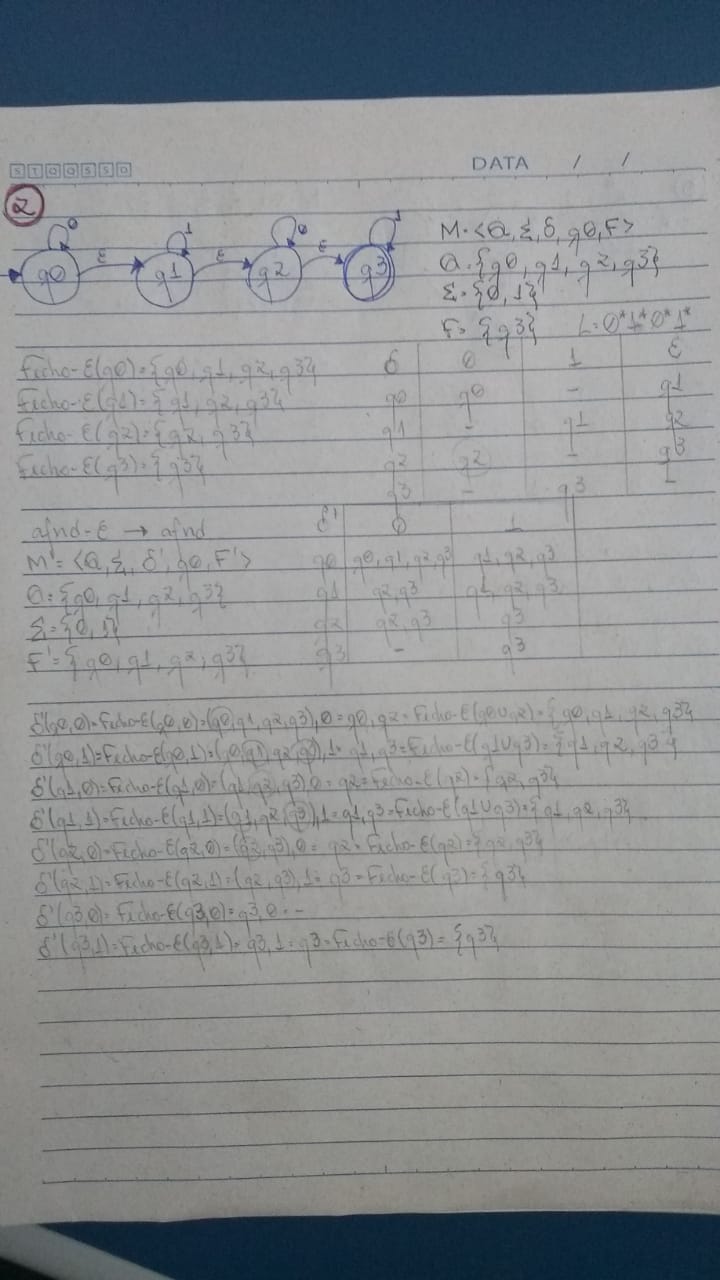 S T Q Q S S D
DATA / /
2
0 1 0 1
q0 ε q1 ε q2 ε q3
M=<Q,Σ,δ,q0,F>
Q={q0,q1,q2,q3}
Σ={0,1}
F={q3} L=0*1*0*1*
Fecho-ε(q0)={q0,q1,q2,q3} δ 0 1 ε
Fecho-ε(q1)={q1,q2,q3} q0 q0 - q1
Fecho-ε(q2)={q2,q3} q1 - q1 q2
Fecho-ε(q3)={q3} q2 q2 - q3
q3 - q3 -
afnd-ε → afnd δ' 0 1
M'=<Q,Σ,δ',q0,F'> q0 q0,q1,q2,q3 q1,q2,q3
Q={q0,q1,q2,q3} q1 q2,q3 q1,q2,q3
Σ={0,1} q2 q2,q3 q3
F'={q0,q1,q2,q3} q3 - q3
δ'(q0,0)=Fecho-ε(q0,0)=(q0,q1,q2,q3),0=q0,q2=Fecho-ε(q0∪q2)={q0,q1,q2,q3}
δ'(q0,1)=Fecho-ε(q0,1)=(q0,q1,q2,q3),1=q1,q3=Fecho-ε(q1∪q3)={q1,q2,q3}
δ'(q1,0)=Fecho-ε(q1,0)=(q1,q2,q3),0=q2=Fecho-ε(q2)={q2,q3}
δ'(q1,1)=Fecho-ε(q1,1)=(q1,q2,q3),1=q1,q3=Fecho-ε(q1∪q3)={q1,q2,q3}
δ'(q2,0)=Fecho-ε(q2,0)=(q2,q3),0=q2=Fecho-ε(q2)={q2,q3}
δ'(q2,1)=Fecho-ε(q2,1)=(q2,q3),1=q3=Fecho-ε(q3)={q3}
δ'(q3,0)=Fecho-ε(q3,0)=q3,0=-
δ'(q3,1)=Fecho-ε(q3,1)=q3,1=q3=Fecho-ε(q3)={q3}